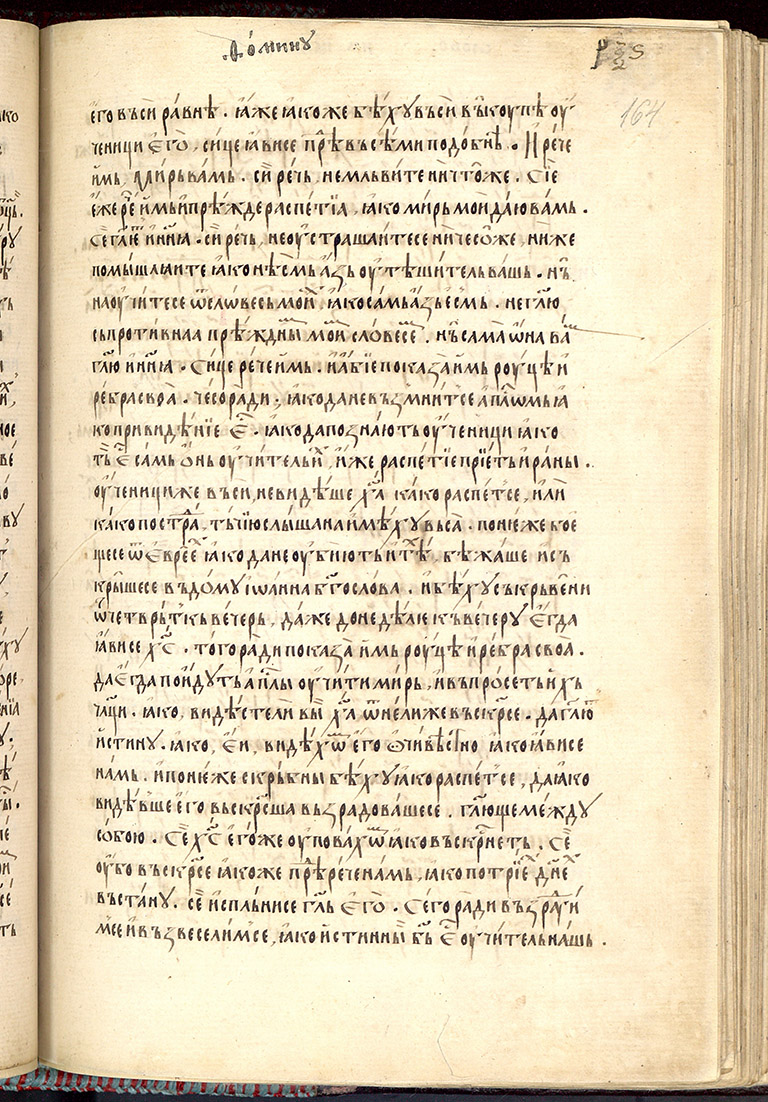 .Ѳо́минꙋ
164
е҆го въси ра́внѣ . ꙗ҆́же ꙗ҆коже бѣ́хꙋ въси въкоупѣ оу҆
ченици Е҆го̀ , си́це ꙗ҆́висе прѣ̀ въсѣ́ми подо́бнѣ . И҆ ре́че
и҆̀мь , Ми́рь ва́мь . си̏ рѣчь , не мльви́те ничто́же . Сїе
е҆́же ре̏ и҆́мь и҆ прѣ́жде распе́тїа , ꙗ҆ко ми́рь мои да́ю ва́мь .
Се гл҃ѥть и҆ ни́нꙗ . си̏ рѣчь , не оу҆страша́итесе ничесо́же , ни́же
помышлꙗ́ите ꙗ҆́ко нѣ́смь а҆́зь оу҆тѣ́шитель вашь . нь̏
наоу҆чи́тесе ѿ сло́весь мои́х , ꙗ҆́ко самь а҆́зь е҆́смь . не гл҃ю
съпроти́внаа прѣ́жднꙑм мои́м сло́весем . нь̏ сама̀ ѡ҆́на вам
гл҃ю и҆ ни́нꙗ . Си́це ре́че и҆мь . и҆ а҆́бїе показа̀ и҆мь роу́цѣ и҆
ре́бра своꙗ̀ . Чесо́ ради ; ꙗ҆ко да не възмни́тсе а҆пⷭ҇лѡмь ꙗ҆́
ко привидѣ́нїе е҆с̑ . ꙗ҆ко да позна́ють оу҆ченици ꙗ҆ко
тъ̏ е҆с̑ самь ѻ҆нь оу҆чи́тель и҆х , и҆́же распе́тїе прїе́ть и҆ ра́ны .
оу҆ченици же въси , не ви́дѣше хⷭ҇а ка́ко распе́тсе , и҆ли
ка́ко постра̏да , тъчїю слы́шали и҆мѣ́хꙋ вьса̀ . поне́же бое
щесе ѿ Е҆вре́е ꙗ҆ко да не оу҆бїю́ть и҆ тѣ́х , бѣжа́ше и съ
кры́шесе въ до́мꙋ і҆ѡа́нна б҃гослова . и҆ бѣ́хꙋ съкрьве́ни
ѿ четврьтка вечерь , да́же до неде́лѥ къ ве́черꙋ Е҆гда
ꙗ҆́висе хⷭ҇ . того́ ради показа̀ и҆мь роу́цѣ и҆ ре́бра своꙗ̀ .
да Е҆гда пои́дꙋть а҆пⷭ҇лы оу҆чи́ти ми́рь , и҆ въпро́сеть и҆х ь
ча́ци . ꙗ҆ко , ви́дѣсте ли вы̏ хⷭ҇а ѿне́лиже въскрⷭ҇се . да гл҃ють
и҆́стинꙋ . ꙗ҆ко , е҆́и , ви́дѣхѡм е҆го ѻ҆чиве́стно ꙗ҆ко ꙗ҆́висе
на́мь . и҆ поне́же скрь́бны бѣ́хꙋ ꙗ҆ко распе́тсе , да ꙗ҆́ко
ви́дѣвше е҆го въскрⷭ҇ша възрадова́шесе . гл҃юще ме́ждꙋ
со́бою . Се хⷭ҇ е҆го́же оу҆пова́хѡм ꙗ҆ко въскрⷭ҇не́ть . Се̏
оу҆бо въскрⷭ҇се ꙗ҆ко́же прѣ̏рече на́мь , ꙗ҆ко по трїе́х дн҃ех
въста́нꙋ . се̏ и҆спль́нисе гл҃ь Е҆го̀ . Сего́ ради възра̏дꙋи
мсе и҆ възвесели́мсе , ꙗ҆ко и҆́стинны б҃ь е҆с̑ оу҆чи́тель нашь .